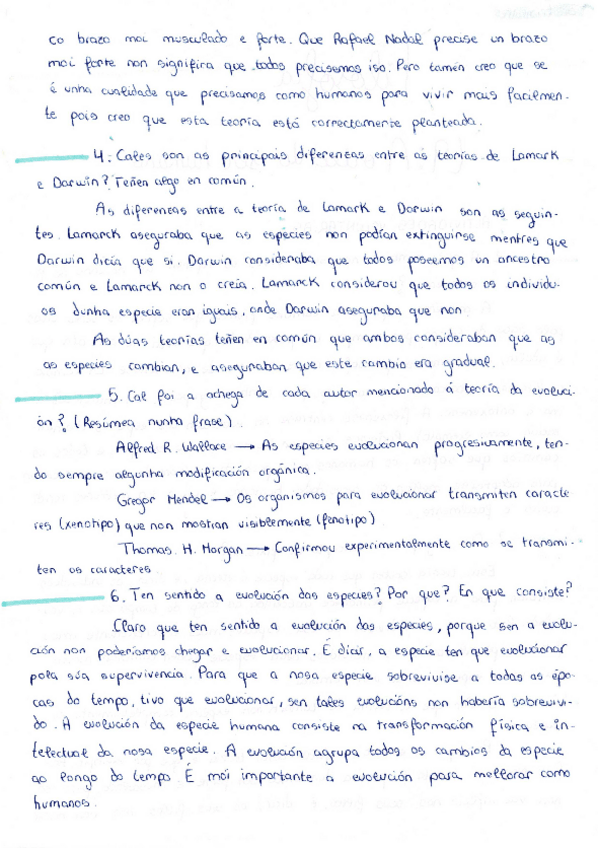 co brazo moi musculado e forte. Que Rafael Nadal precise un brazo
moi forte non signifira que todos precisemos iso. Pero tamén creo que se
é unha cualidade que precisamos como humanos para vivir mais facilmen-
te pois creo que esta teoría está correctamente planteada.
4. Cales son as principais diferenzas entre as teorías de Lamark
e Darwin? Teñen algo en común.
As diferenzas entre a teoría de Lamark e Darwin son as seguin-
tes. Lamarck aseguraba que as especies non podían extinguirse mentres que
Darwin dicía que si. Darwin consideraba que todos poseemos un ancestro
común e Lamarck non o creía. Lamarck considerou que todos os individu-
os dunha especie eran iguais, onde Darwin aseguraba que non
As dúas teorías teñen en común que ambos consideraban que as
as especies cambian, e aseguraban que este cambio era gradual.
5. Cal foi a achega de cada autor mencionado á teoría da evoluci-
ón? (Resúmea nunha frase).
Alfred R. Wallace → As especies evolucionan progresivamente, ten-
do sempre algunha modificación orgánica.
Gregor Mendel → Os organismos para evolucionar transmiten caracte
res (xenotipo) que non mostran visiblemente (fenotipo)
Thomas. H. Morgan → Confirmou experimentalmente como se transmi-
ten os caracteres
6. Ten sentido a evolución das especies? Por que? En que consiste?
Claro que ten sentido a evolución das especies, porque sen a evolu-
ción non poderíamos chegar e evolucionar. É dicir, a especie ten que evolucionar
pola súa supervivencia. Para que a nosa especie sobrevivise a todas as épo-
cas do tempo, tivo que evolucionar, sen tales evolucións non habería sobrevivi-
do. A evolución da especie humana consiste na transformación física e in-
telectual da nosa especie. A evolución agrupa todos os cambios da especie
ao longo do tempo. É moi importante a evolución para mellorar como
humanos.